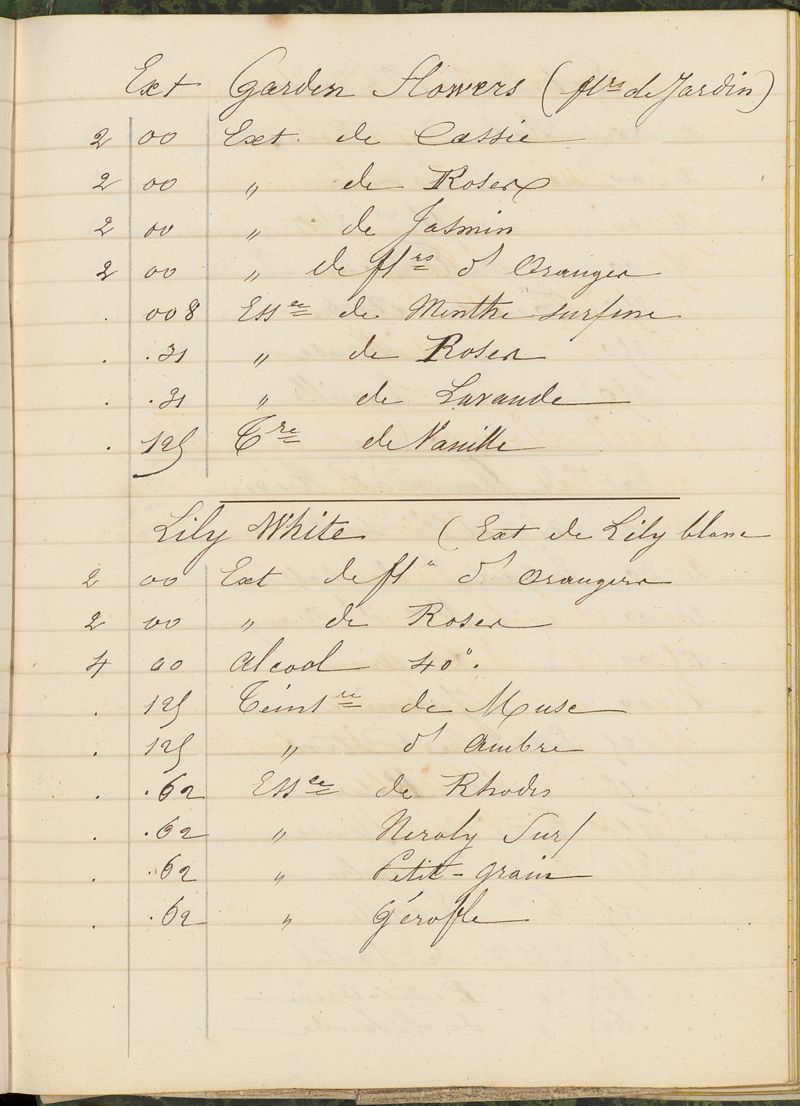 Ext Garden Flowers (flrs de Jardin)
2 00 Ext. de Cassie
2 00 " de Roses
2 00 " de Jasmin
2 00 " de flrs d'Oranger
. 008 Essce de Menthe surfine
. .31 " de Roses
. .31 " de Lavande
. 125 Tre de Vanille
Lily White (Ext de Lily blanc
2 00 Ext de fl" d'Orangers
2 00 " de Roses
4 00 Alcool 40°.
. 125 Teintre de Musc
. 125 " d'Ambre
. .62 Essce de Rhodes
. .62 " Neroly Surf
. .62 " Petit-grain
. .62 " Gérofle